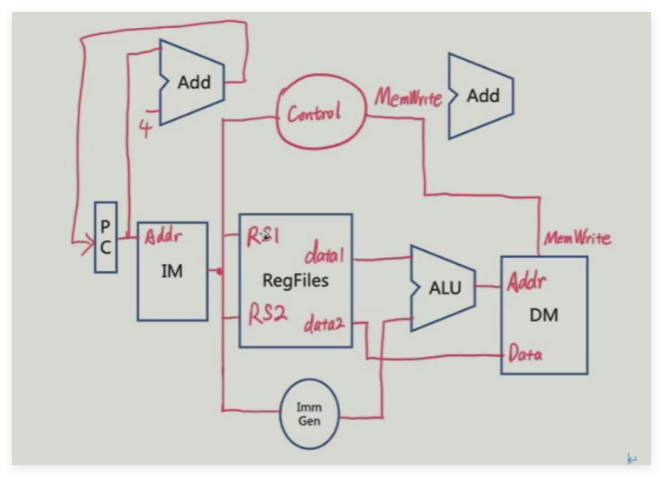 Add
4
Control
MemWrite
Add
PC
Addr
IM
RS1
data1
RegFiles
RS2
data2
ALU
MemWrite
Addr
DM
Data
Imm
Gen